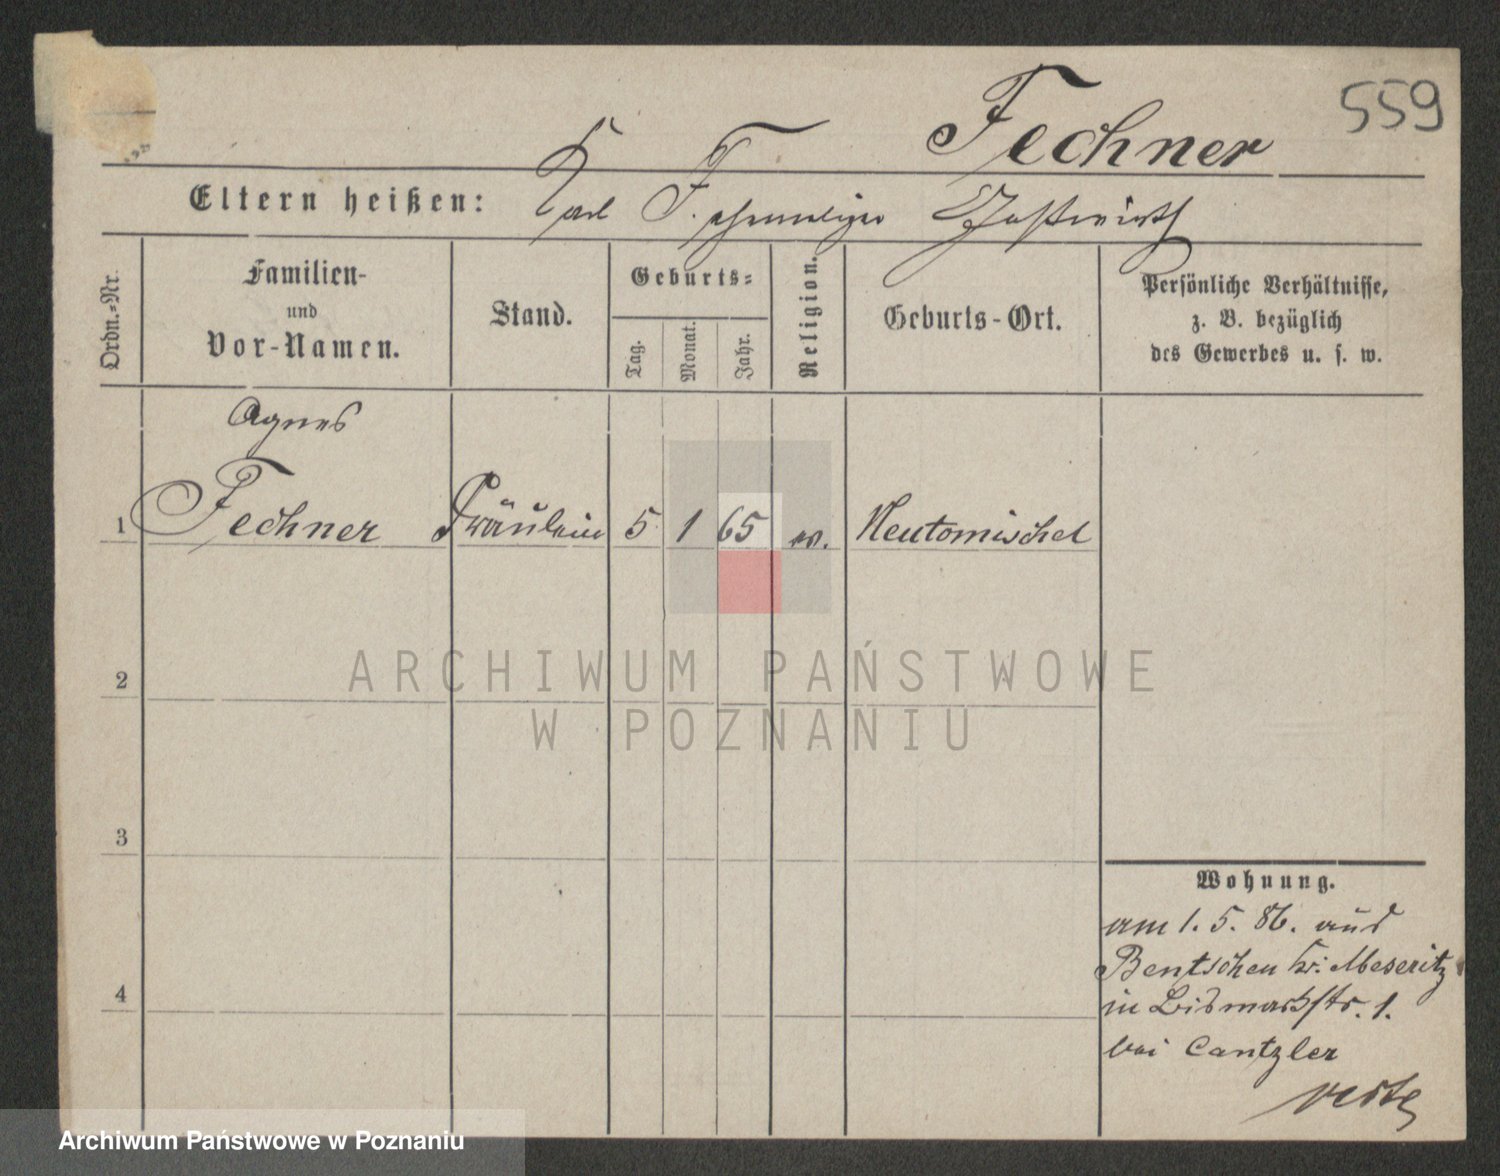 559
Fechner
Eltern heißen: Karl F. ehemaliger Gastwirth
Ordn.=Nr.
Familien-
und
Vor-Namen.
Stand.
Geburts=
Tag.
Monat.
Jahr.
Religion.
Geburts-Ort.
Persönliche Verhältnisse,
z. B. bezüglich
des Gewerbes u. s. w.
Agnes
1 Fechner Fräulein 5 1 65 ev. Neutomischel
2
3
4
Wohnung.
am 1. 5. 86. aus
Bentschen Kr. Meseritz
in Bismarkstr. 1.
bei Cantzler
ARCHIWUM PAŃSTWOWE
W POZNANIU
Archiwum Państwowe w Poznaniu